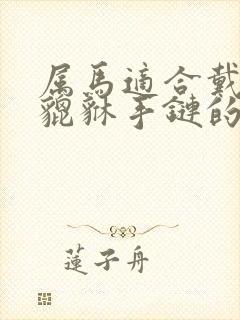 属馬適合戴
貔貅手鏈的
蓮子舟